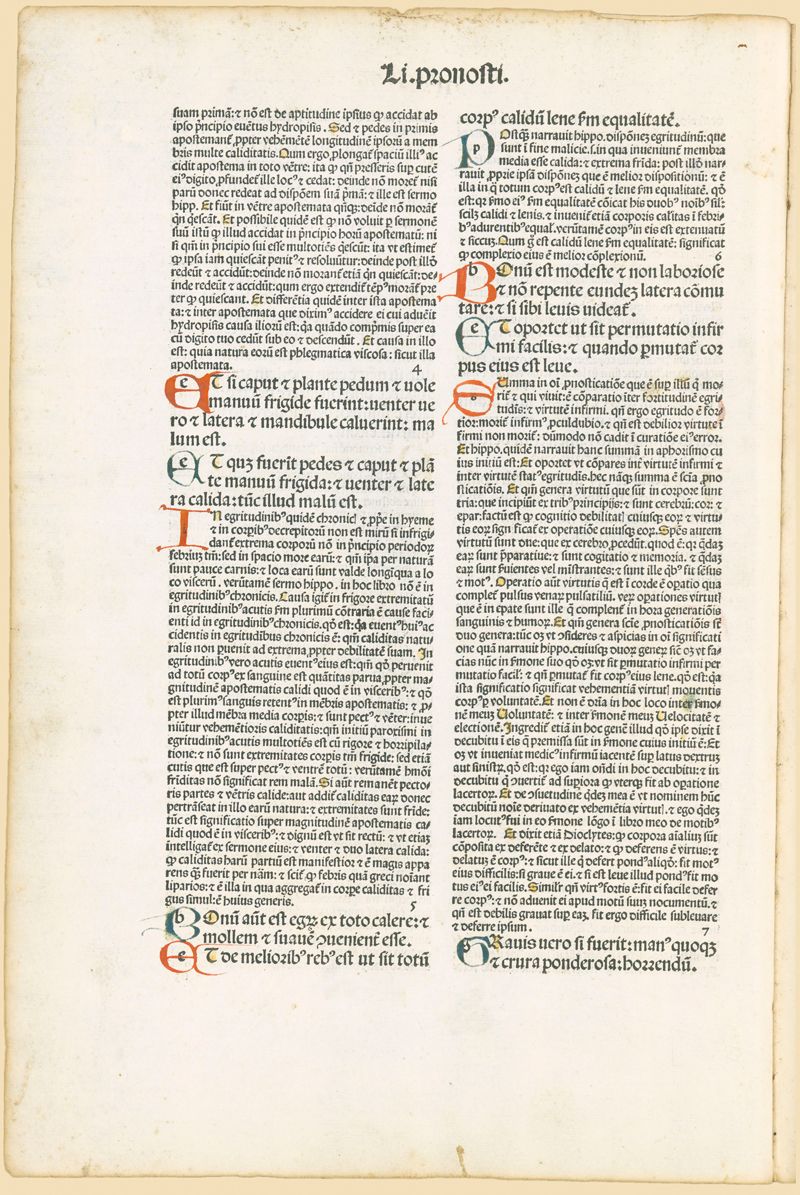 Li.pronosti.
suam primã:⁊ nõ est de aptitudine ipsius ꝙ accidat ab
ipso p̃ncipio euẽtus hydropisis. Sed ⁊ pedes in primis
apostemant᷑ ꝓpter vehẽmẽtẽ longitudinẽ ipsorũ a mem
bris multe caliditatis. Cum ergo ꝓlongat᷑ spaciũ illiꝰ ac
cidit apostema in toto vẽtre: ita ꝙ qñ presseris sup̱ cutẽ
eiꝰ digito ꝓfundet᷑ ille locꝰ ⁊ cedat: deinde nõ moret᷑ nisi
parũ donec redeat ad dispõem suã p̃mã: ⁊ ille est sermo
hipp. Et fiũt in vẽtre apostemata qñqꝫ: deinde nõ morãt᷑
qñ q̃escãt. Et possibile quidẽ est ꝙ nõ voluit p̱ sermonẽ
suũ istũ ꝙ illud accidat in p̃ncipio horũ apostematũ: ni
si qm̃ in p̃ncipio sui esse multotiẽs q̃escũt: ita vt estimet᷑
ꝙ ipsa iam quiescãt penitꝰ ⁊ resoluũtur: deinde post illõ
redeũt ⁊ accidũt: deinde nõ morant᷑ etiã qñ quiescãt: de-
inde redeũt ⁊ accidũt: qum ergo extendit᷑ tẽpꝰ morãt᷑ pre
ter ꝙ quiescant. Et differẽtia quidẽ inter ista apostema
ta: ⁊ inter apostemata que diximꝰ accidere ei cui aduẽit
hydropisis causa iliorũ est: q̃a quãdo comp̃mis super ea
cũ digito tuo cedũt sub eo ⁊ descendũt. Et causa in illo
est: quia natura eorũ est phlegmatica viscosa: sicut illa
apostemata. 4
e T si caput ⁊ plante pedum ⁊ uole
manuũ frigide fuerint: uenter ue
ro ⁊ latera ⁊ mandibule caluerint: ma
lum est.
e T quꝫ fuerit pedes ⁊ caput ⁊ plã
te manuũ frigida: ⁊ uenter ⁊ late
ra calida: tũc illud malũ est.
IN egritudinibꝰ quidẽ chronicꝭ ⁊ ꝓp̃e in hyeme
⁊ in corp̱ibꝰ decrepitorũ non est mirũ si infrigi
dant᷑ extrema corporũ nõ in p̃ncipio periodoꝝ
febriuꝫ tm̃: sed in spacio more earũ: ⁊ qm̃ ip̃a per naturã
sunt pauce carnis: ⁊ loca earũ sunt valde longĩqua a lo
co viscerũ. verũtamẽ sermo hippo. in hoc libro nõ ẽ in
egritudinibꝰ chronicis. Causa igit᷑ in frigore extremitatũ
in egritudinibꝰ acutis fm̃ plurimũ cõtraria ẽ cause faci-
enti id in egritudinibꝰ chronicis. qõ est: q̃a euent᷑ huiꝰ ac
cidentis in egritudĩbus chronicis ẽ: qm̃ caliditas natu-
ralis non ꝑuenit ad extrema ꝓpter debilitatẽ suam. In
egritudinibꝰ vero acutis euent᷑ eius est: qm̃ qõ peruenit
ad totũ corpꝰ ex sanguine est quãtitas parua ꝓpter ma-
gnitudinẽ apostematis calidi quod ẽ in visceribꝰ: ⁊ qõ
est plurimꝰ sanguis retentꝰ in mẽbris apostematis: ⁊ ꝓ-
pter illud mẽbra media corp̱is: ⁊ sunt pectꝰ ⁊ vẽter: inue
niũtur vehemẽtioris caliditatis: qm̃ initiũ paroxismi in
egritudinibꝰ acutis multotiẽs est cũ rigore ⁊ horripila-
tione: ⁊ nõ sunt extremitates corp̱is tm̃ frigide: sed etiã
cutis que est super pectꝰ ⁊ ventrẽ totũ: verũtamẽ hmõi
fr̃iditas nõ significat rem malã. Si aũt remanẽt pecto-
ris partes ⁊ vẽtris calide: aut addit᷑ caliditas earꝝ donec
pertrãseat in illo earũ natura: ⁊ extremitates sunt fr̃ide:
tũc est significatio super magnitudinẽ apostematis ca-
lidi quod ẽ in visceribꝰ: ⁊ dignũ est vt sit rectũ: ⁊ vt etiaꝫ
intelligat᷑ ex sermone eius: ⁊ venter ⁊ duo latera calida:
ꝙ caliditas harũ partiũ est manifestior ⁊ ẽ magis appa
rens qꝫ fuerit per nãm: ⁊ scit᷑ ꝙ febris quã greci noĩant
liparios: ⁊ ẽ illa in qua aggregat᷑ in corp̱e caliditas ⁊ fri
gus simul: ẽ huius generis. 5
b Onũ aũt est egr̃ꝫ ex toto calere: ⁊
mollem ⁊ suauẽ ꝯuenient᷑ esse.
e T de melioribꝰ rebꝰ est ut sit totũ
corpꝰ calidũ lene fm̃ equalitatẽ.
p Ostqꝫ narrauit hippo. dispõnes egritudinũ: que
sunt ĩ fine malicie. s. in qua inueniunt᷑ membra
media esse calida: ⁊ extrema fr̃ida: post illõ nar-
rauit ꝓprie ipsã dispõneꝫ que ẽ melior dispositionũ: ⁊ ẽ
illa in q̃ totum corpꝰ est calidũ ⁊ lene fm̃ equalitatẽ. qõ
est: qꝛ fmo eiꝰ fm̃ equalitatẽ cõicat his duobꝰ noĩbꝰ sil̃:
scilꝫ calidi ⁊ lenis. ⁊ inuenit᷑ etiã corporis cal̃itas ĩ febri-
bꝰ adurentibꝰ equal̃. verũtamẽ corpꝰ in eis est extenuatũ
⁊ siccuꝫ. Qum g̃ est calidũ lene fm̃ equalitatẽ: significat
ꝙ complexio eius ẽ melior cõplexionũ. 6
b Onũ est modeste ⁊ non laboriose
⁊ nõ repente eundeꝫ latera cõmu
tare: ⁊ si sibi leuis uideat᷑.
e T oportet ut sit permutatio infir
mi facilis: ⁊ quando ꝑmutat᷑ cor
pus eius est leue.
s Umma in oĩ ꝓnosticatiõe que ẽ sup̱ illũ q̃ mo-
rit᷑ ⁊ qui viuit: ẽ cõparatio ĩter fortitudinẽ egri-
tudĩs: ⁊ virtutẽ infirmi. qñ ergo egritudo ẽ for-
tior: morit᷑ infirmꝰ ꝓculdubio. ⁊ qñ est debilior virtute ĩ
firmi non morit᷑: dũmodo nõ cadit ĩ curatiõe eiꝰ error.
Et hippo. quidẽ narrauit hanc summã in aphorismo cu
ius initiũ est: Et oportet vt cõpares int̃ virtutẽ infirmi ⁊
inter virtutẽ stat᷑ egritudĩs. hec nãqꝫ summa ẽ scĩa ꝓno
sticatiõis. Et qñ genera virtutũ que sũt in corpore sunt
tria: que incipiũt ex tribꝰ principijs: ⁊ sunt cerebrũ: cor: ⁊
epar: factũ est ꝙ cognitio debilitatꝭ cuiusqꝫ eoꝝ ⁊ virtu-
tis eoꝝ sign ficat᷑ ex operatiõe cuiusqꝫ eoꝝ. Spẽs autem
virtutũ sunt due: que ex cerebro ꝓcedũt. quod ẽ: qꝛ q̃daꝫ
eaꝝ sunt p̃paratiue: ⁊ sunt cogitatio ⁊ memoria. ⁊ q̃daꝫ
eaꝝ sunt ẽuientes vel mĩstrantes: ⁊ sunt ille q̃bꝰ fit sẽsus
⁊ motꝰ. Operatio aũt virtutis q̃ est ĩ corde ẽ opatio qua
complet᷑ pulsus venaꝝ pulsatiliũ. veꝝ opationes virtutꝭ
que ẽ in epate sunt ille q̃ complent᷑ in hora generatiõis
sanguinis ⁊ humoꝝ. Et qm̃ genera scĩe ꝓnosticatiõis st̃
duo genera: tũc oꝫ vt ꝯsideres ⁊ aspicias in oĩ significati
one quã narrauit hippo. cuiusqꝫ duoꝝ geneꝝ sit᷑ oꝫ vt fa-
cias nũc in fmone suo qõ oꝫ vt sit ꝑmutatio infirmi per
mutatio facil̃: ⁊ qñ ꝑmutat᷑ sit corpꝰ eius lene. qõ est: q̃a
ista significatio significat vehementiã virtutꝭ mouentis
corpꝰ p̱ voluntatẽ. Et non ẽ dr̃ia in hoc loco inter fmo-
nẽ meuꝫ Uoluntatẽ: ⁊ inter fmonẽ meuꝫ Uelocitatẽ ⁊
electionẽ. Ingredit᷑ etiã in hoc genẽ illud qõ ipse dixit ĩ
decubitu ĩ eis q̃ premissa sũt in fmone cuius initiũ ẽ: Et
oꝫ vt inueniat medicꝰ infirmũ iacentẽ sup̱ latus dextrũ
aut sinistrũ. qõ est: qꝛ ego iam oñdi in hoc decubitu: ⁊ in
decubitu q̃ ꝯuertit᷑ ad sup̱iora ꝙ vterqꝫ fit ab opatione
lacertoꝝ. Et de ꝯsuetudine q̃deꝫ mea ẽ vt nominem hũc
decubitũ noĩe deriuato ex vehemẽtia virtutꝭ. ⁊ ego q̃deꝫ
iam locutꝰ fui in eo fmone lõgo ĩ libro meo de motibꝰ
lacertoꝝ. Et dixit etiã Dioclytes: ꝙ corpora aĩaliuꝫ sũt
cõposita ex deferẽte ⁊ ex delato: ⁊ ꝙ deferens ẽ virtus: ⁊
delatuꝫ ẽ corpꝰ: ⁊ sicut ille q̃ defert pondꝰ aliqõ: fit motꝰ
eius difficilis: si graue ẽ ei. ⁊ si est leue illud pondꝰ fit mo
tus eiꝰ ei facilis. Similr̃ qñ virtꝰ fortis ẽ: fit ei facile defer
re corpꝰ: ⁊ nõ aduenit ei apud motũ suuꝫ nocumentũ. ⁊
qñ est debilis grauat sup̱ eaꝫ. fit ergo difficile subleuare
⁊ deferre ipsum. 7
g Rauis uero si fuerit: manꝰ quoqꝫ
⁊ crura ponderosa: horrendũ.